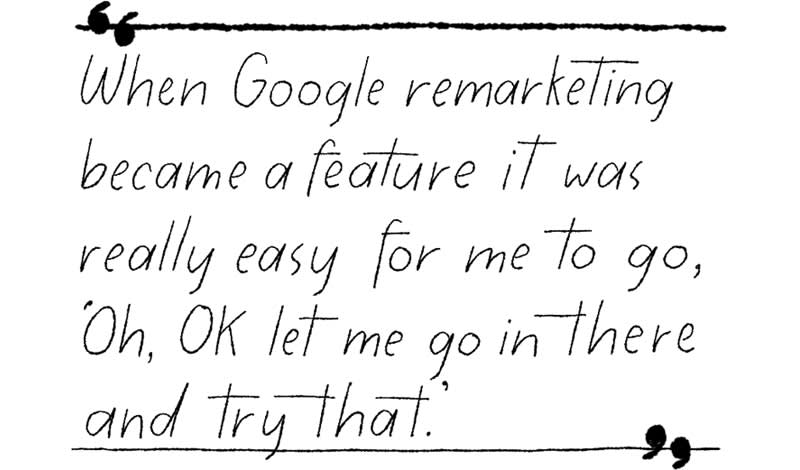 “
When Google remarketing
became a feature it was
really easy for me to go,
'Oh, OK let me go in there
and try that.'
”